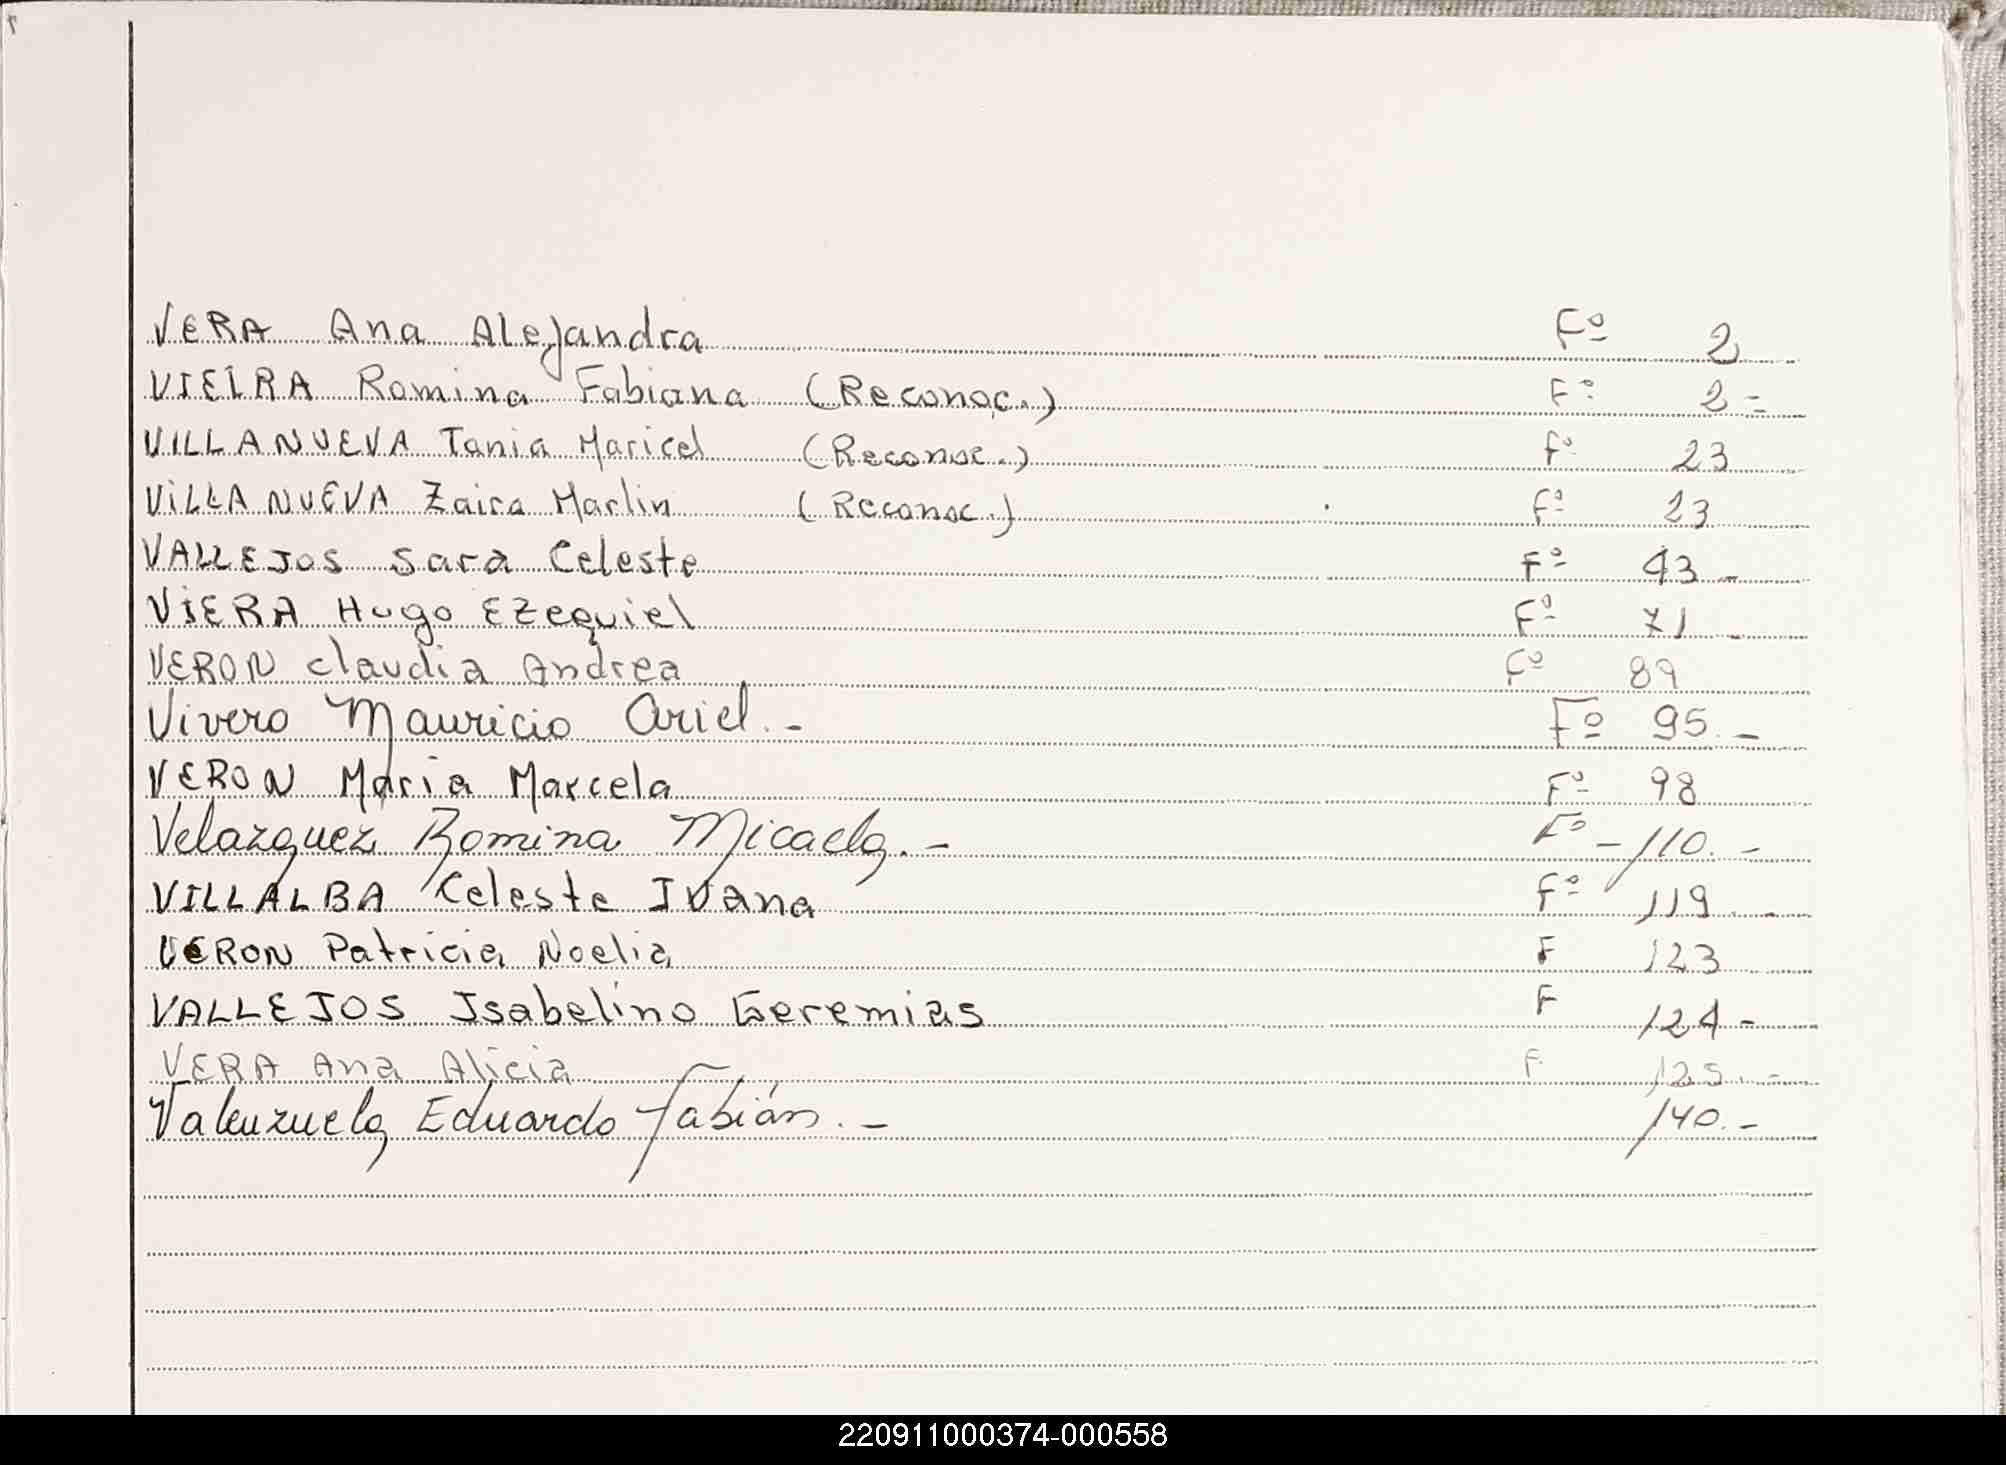 VERA Ana Alejandra Fº 2
VIEIRA Romina Fabiana (Reconoc.) Fº 2=
VILLANUEVA Tania Maricel (Reconoc.) Fº 23
VILLANUEVA Zaira Marlin (Reconoc.) Fº 23
VALLEJOS Sara Celeste Fº 43-
VIERA Hugo EZequiel Fº 71-
VERON Claudia Andrea Fº 89
Vivero Mauricio Ariel.- Fº 95.-
VERON Maria Marcela Fº 98
Velazquez Romina Micaela.- Fº -110.-
VILLALBA Celeste Ivana Fº 119.-
VERON Patricia Noelia F 123
VALLEJOS Isabelino Geremias F 124-
VERA Ana Alicia F 125.-
Valenzuela Eduardo Fabián.- 140.-
220911000374-000558